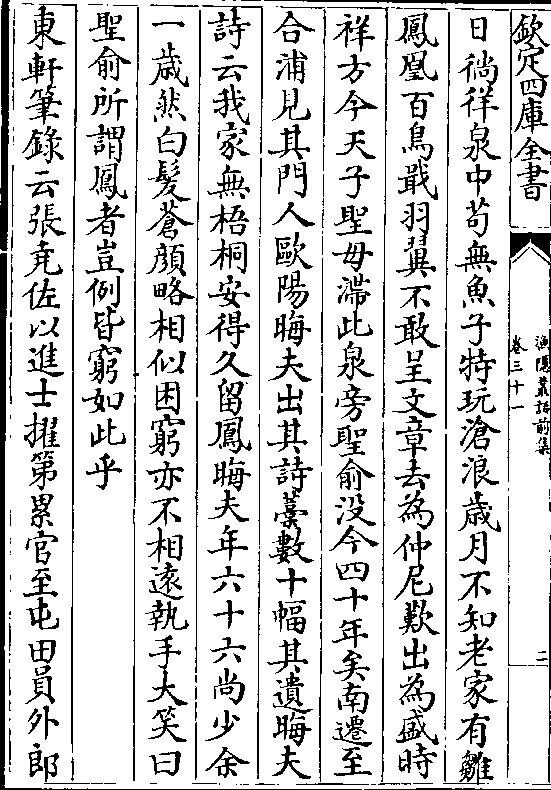 欽定四庫全書
漁隱叢話前集
卷三十一
二
日徜徉泉中苟無魚子特玩滄浪歲月不知老家有雛
鳳凰百鳥戢羽翼不敢呈文章去為仲尼歎出為盛時
祥方今天子聖毋滯此泉旁聖俞没今四十年矣南遷至
合浦見其門人歐陽晦夫出其詩藁數十幅其遺晦夫
詩云我家無梧桐安得久留鳳晦夫年六十六尚少余
一歲然白髮蒼顔略相似困窮亦不相遠執手大笑曰
聖俞所謂鳳者豈例皆窮如此乎
東軒筆錄云張堯佐以進士擢第累官至屯田員外郎